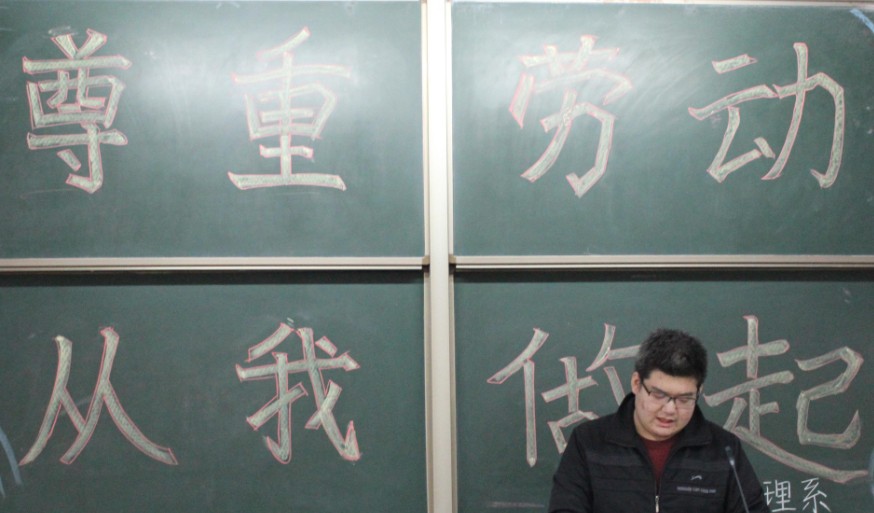 尊重劳动
从我做起
理系